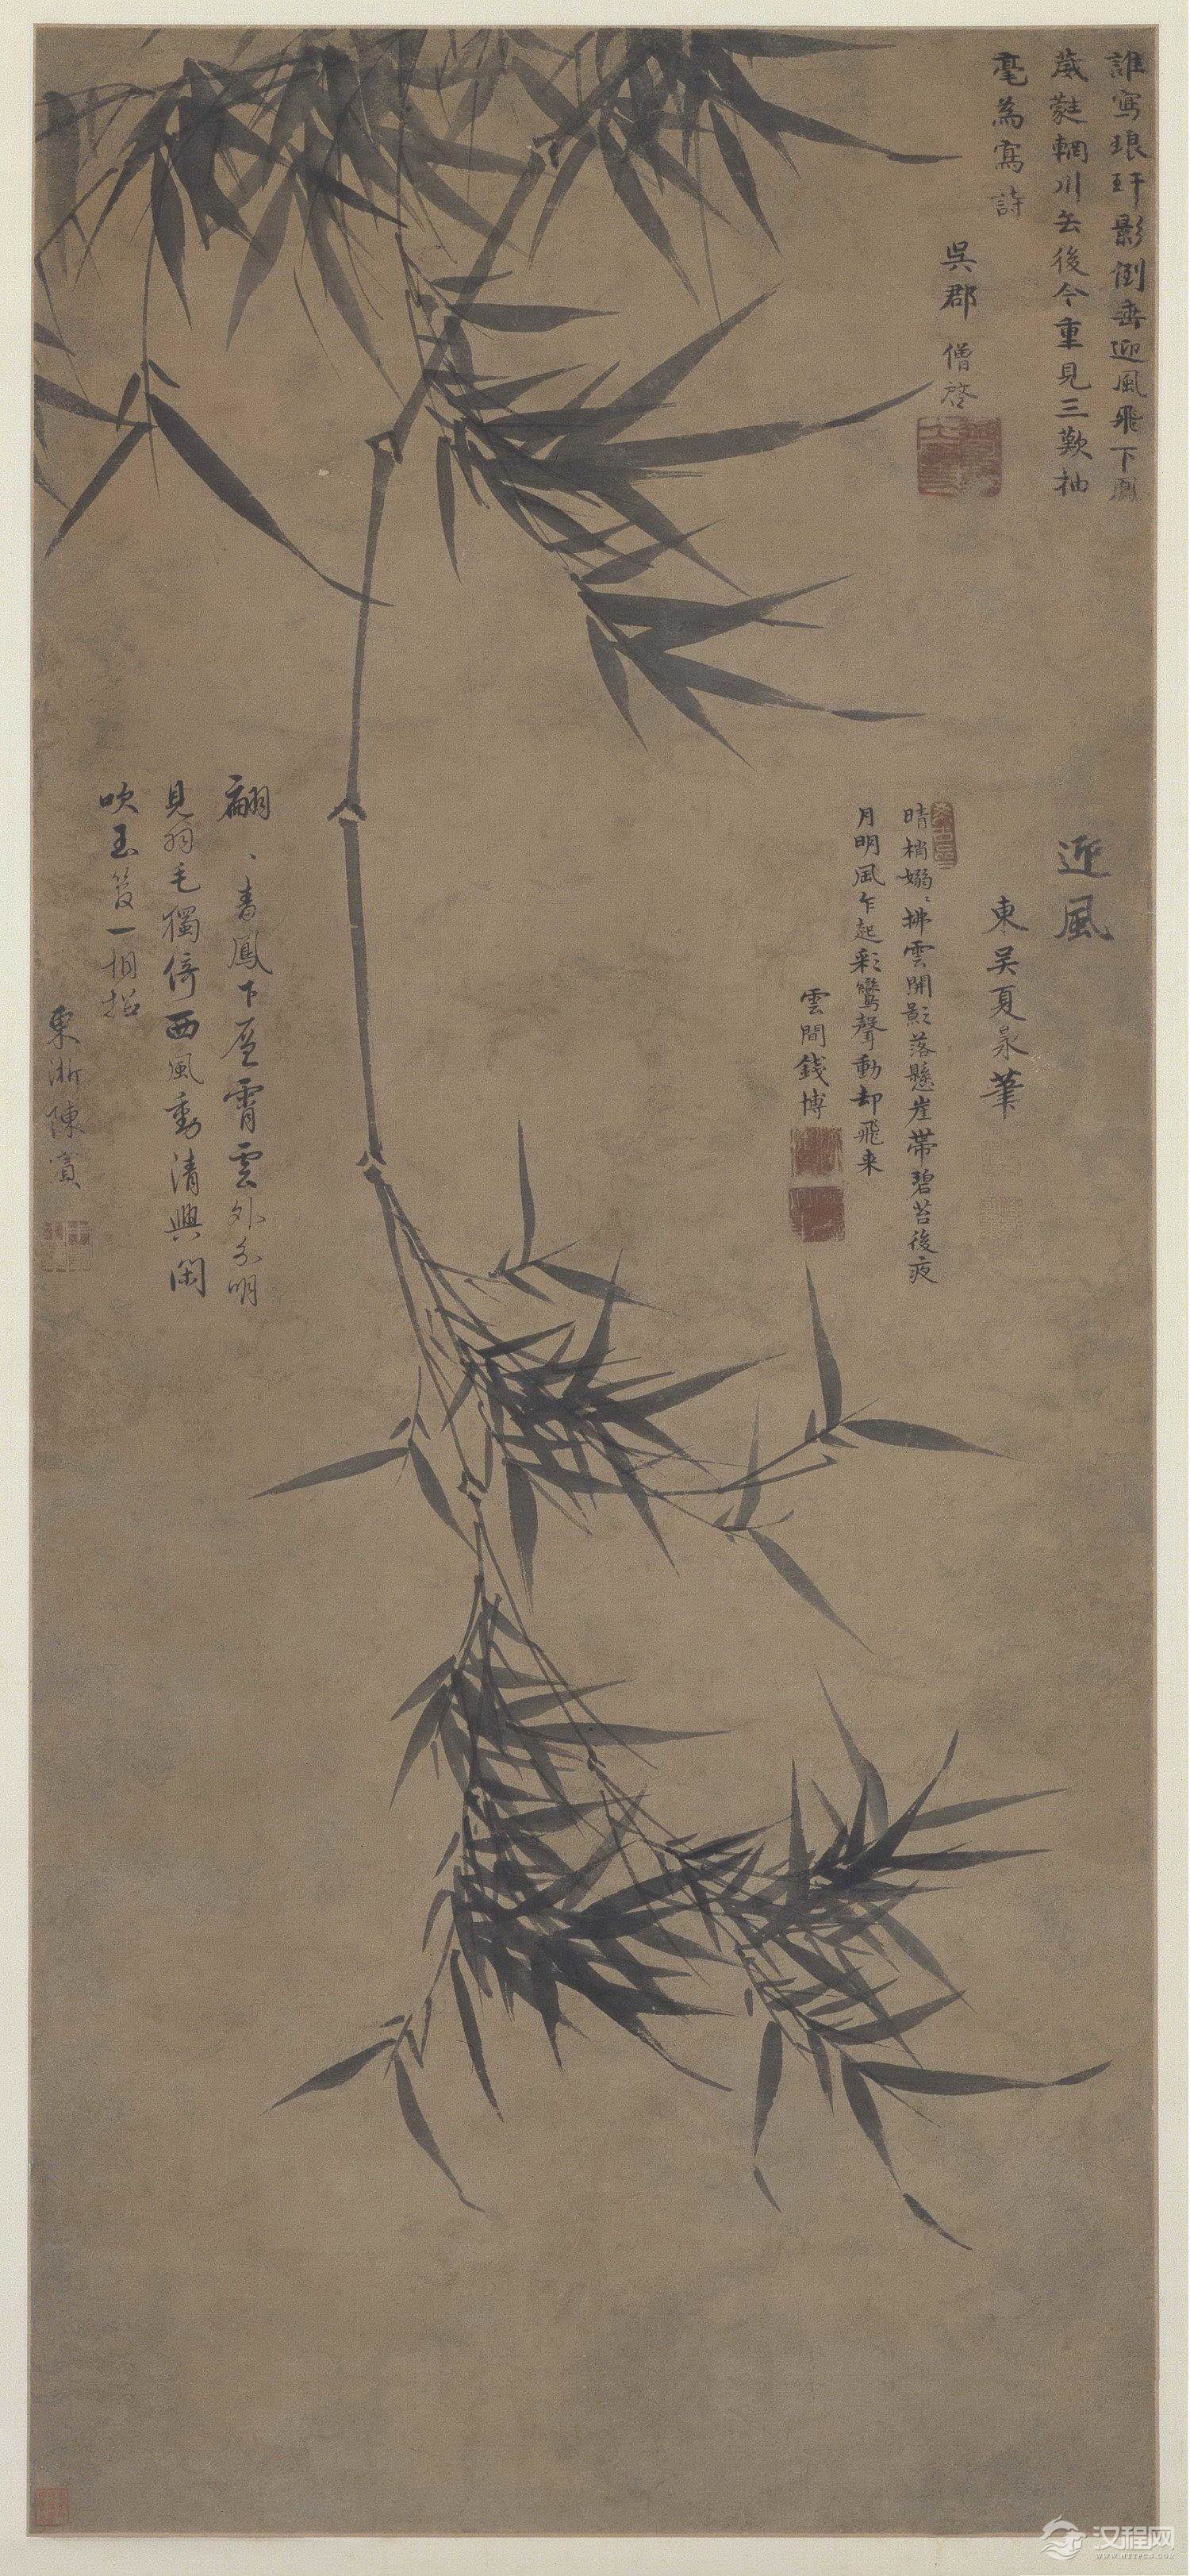 誰寫琅玕影倒垂迎風飛下鳳
葳蕤輞川去後今重見三歎抽
毫為寫詩
吳郡僧啓
迎風
東吴夏㫤筆
晴梢嫋嫋拂雲開影落懸崖帶碧苔後夜
月明風乍起彩鸞聲動却飛来
雲間錢博
翩翩青鳳下層霄雲外分明
見羽毛獨倚西風動清興閑
吹玉管一相招
東浙陳
汉程网
WWW.HTTPCN.COM